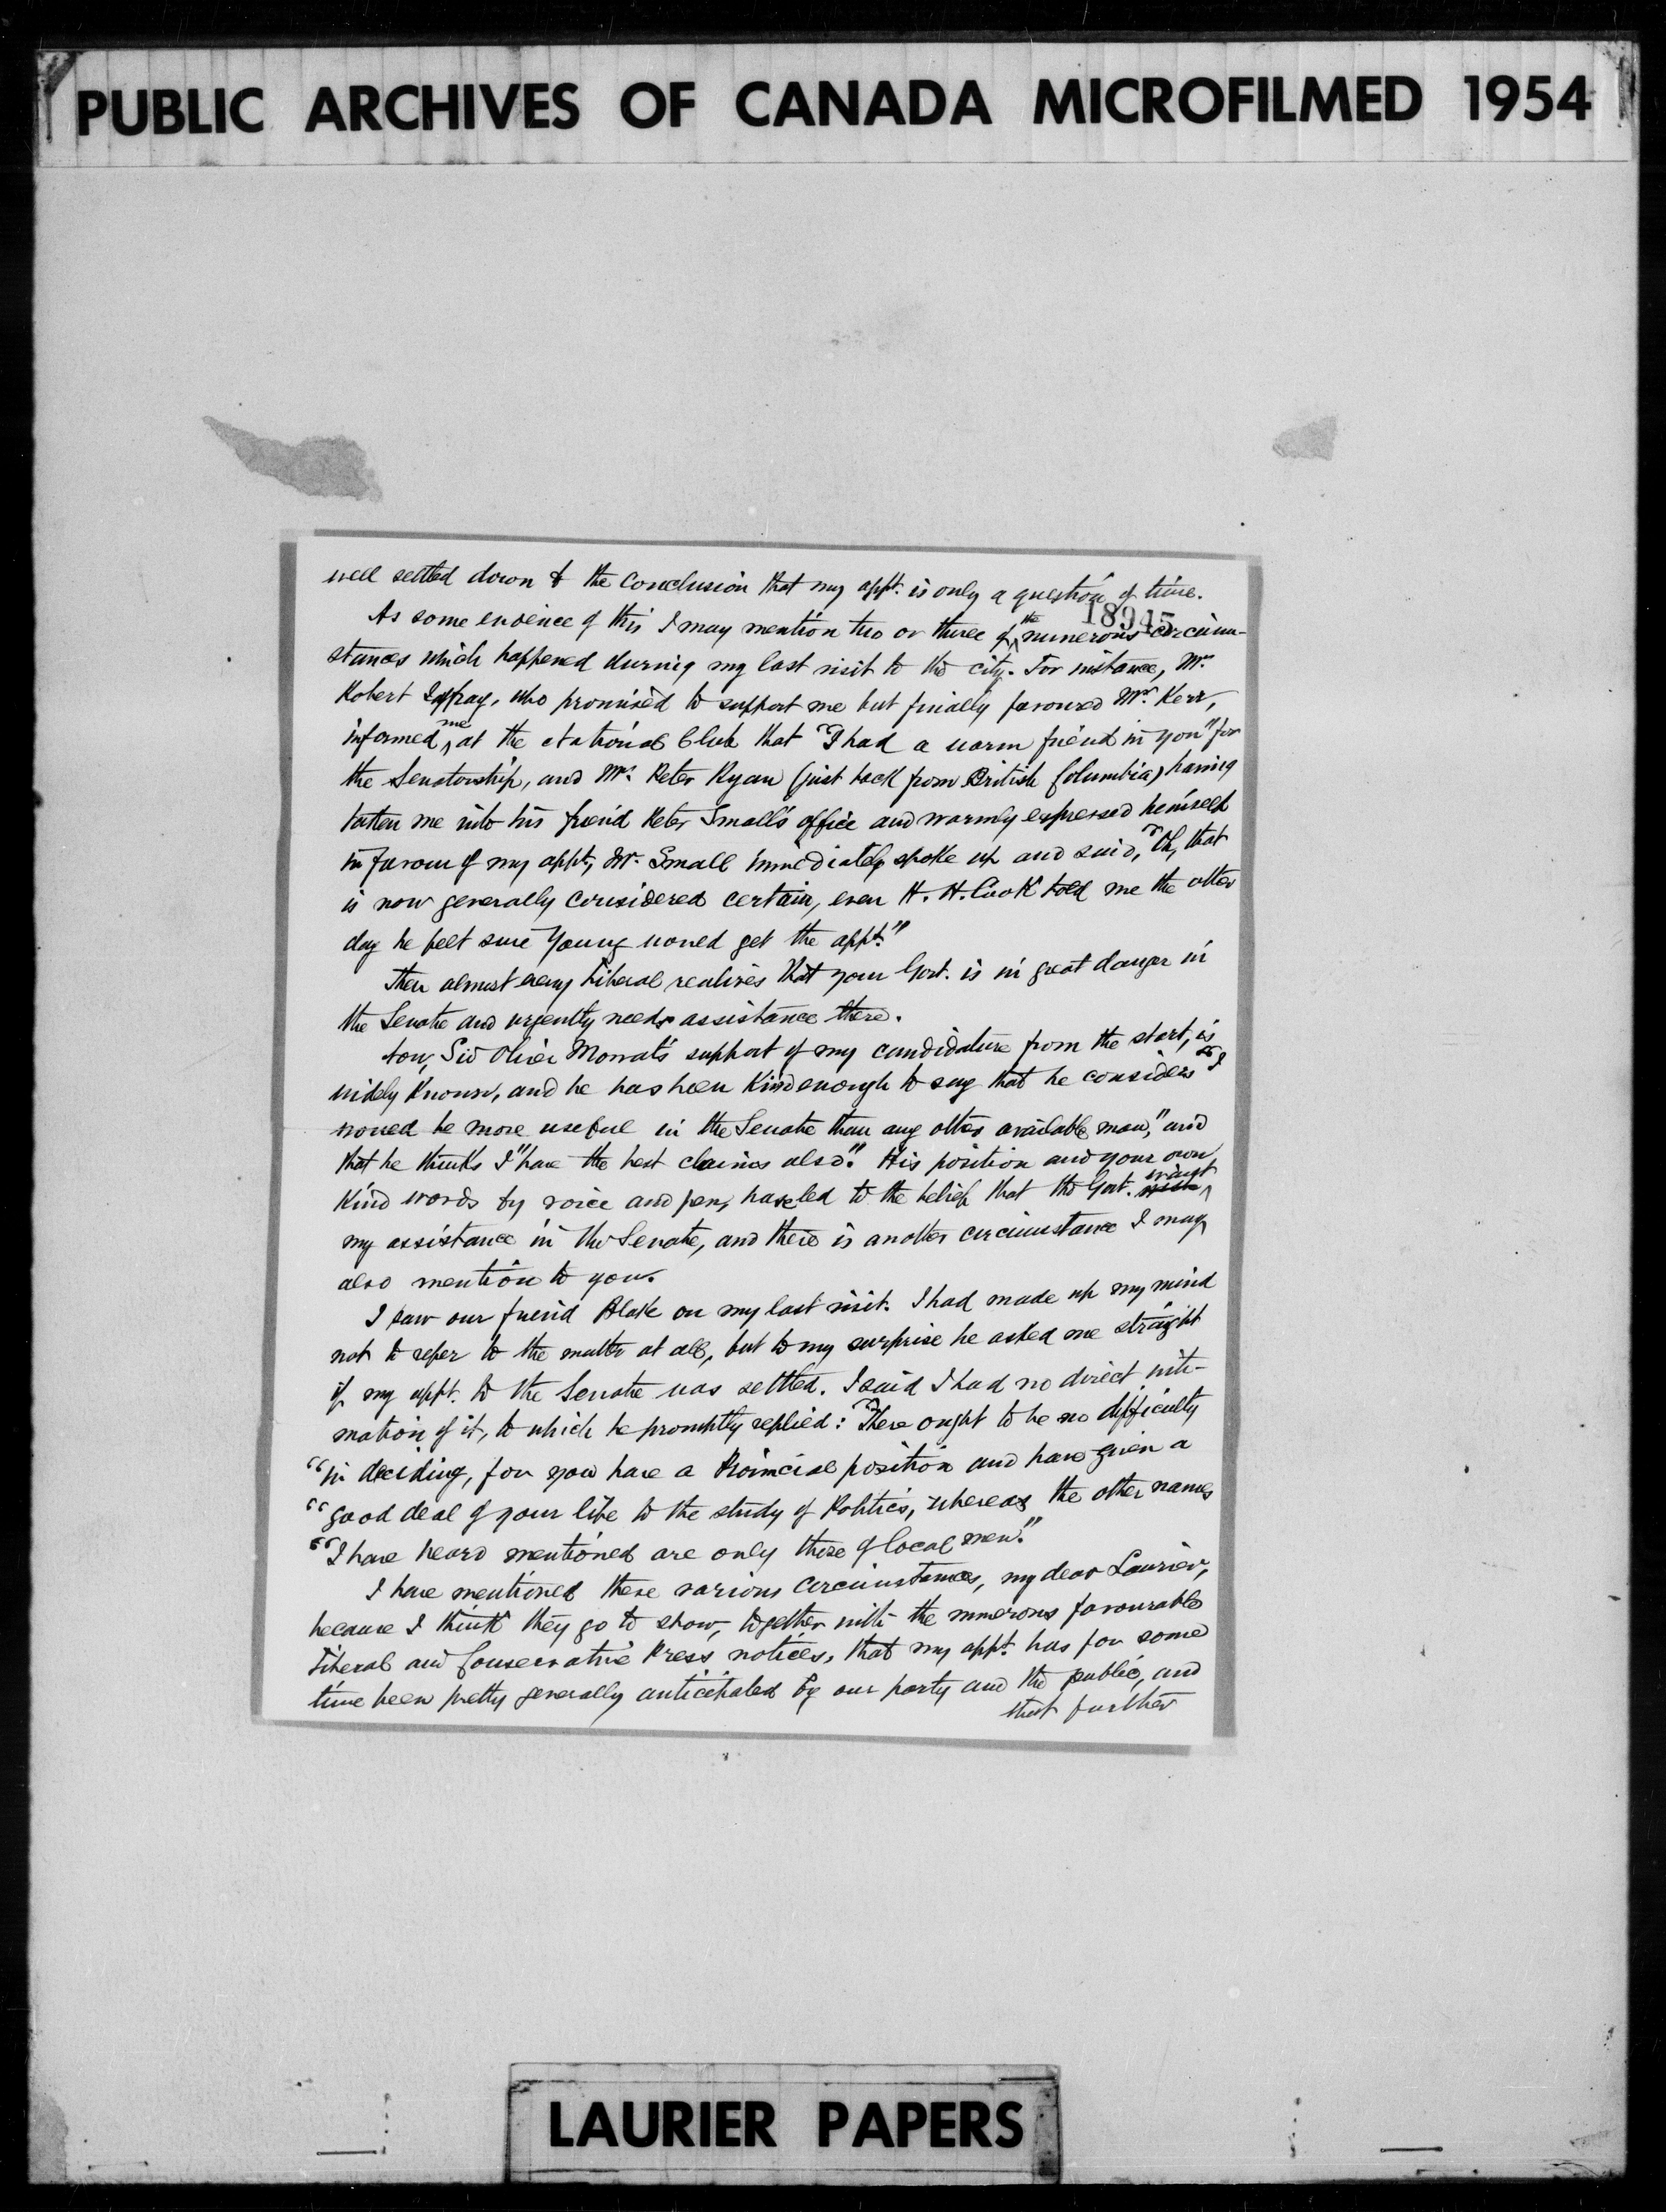 PUBLIC ARCHIVES OF CANADA MICROFILMED 1954
well settled down to the conclusion that my appt. is only a question of time.
18945
As some evidence of this I may mention two or three of the numerous circum-
stances which happened during my last visit to the city. For instance, Mr.
Robert Jaffray, who promised to support me but finally favoured Mr. Kerr,
informed me at the National Club that "I had a warm friend in you" for
the Senatorship, and Mr. Peter Ryan (just back from British Columbia) having
taken me into his friend Peter Small's office and warmly expressed himself
in favour of my appt, Mr. Small immediately spoke up and said, "Oh, that
is now generally considered certain, even H. H. Cook told me the other
day he felt sure Young would get the appt."
Then almost every Liberal realizes that your Govt. is in great danger in
the Senate and urgently needs assistance there.
Sir Oliver Mowat's support of my candidature from the start, is
widely known, and he has been kind enough to say that he considers "I
would be more useful in the Senate than any other available man," and
that he thinks I "have the best claims also." His position and your own
kind words by voice and pen, have led to the belief that the Govt. want
my assistance in the Senate, and there is another circumstance I may
also mention to you.
I saw our friend Blake on my last visit. I had made up my mind
not to refer to the matter at all, but to my surprise he asked me straight
if my appt. to the Senate was settled. I said I had no direct inti-
mation of it, to which he promptly replied: "There ought to be no difficulty
"in deciding, for you have a Provincial position and have given a
"good deal of your life to the study of Politics, whereas the other names
"I have heard mentioned are only those of local men."
I have mentioned these various circumstances, my dear Laurier,
because I think they go to show, together with the numerous favourable
Liberal and Conservative Press notices, that my appt. has for some
time been pretty generally anticipated by our party and the public, and
that further
LAURIER PAPERS